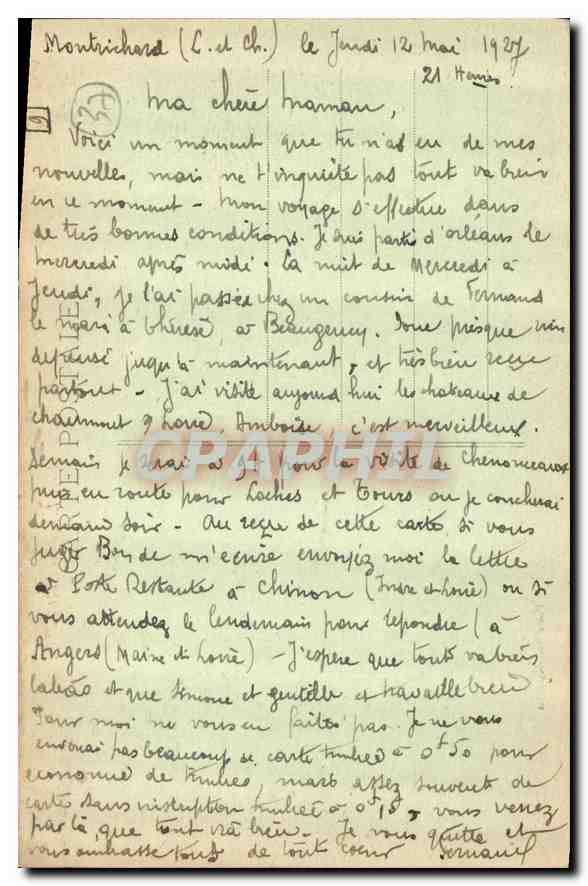 Montrichard (L. et Ch.) le Jeudi 12 Mai 1927
21 Heures
37
9
Ma chère Maman,
Voici un moment que tu n'as eu de mes
nouvelles, mais ne t'inquiète pas tout va bien
en ce moment - Mon voyage s'effectue dans
de très bonnes conditions. Je suis parti d'orléans le
mercredi après midi. La nuit de Mercredi à
Jeudi, je l'ai passée chez un cousin de Fernand
le mari à thérèse, à Beaugency. Donc presque rien
dépensé jusqu'à maintenant, et très bien reçu
partout - J'ai visité aujourd'hui les chateaux de
chaumont s Loire, Amboise, c'est merveilleux.
CPARHIL
Demain je serai à 9h pour la visite de Chenonceaux
puis en route pour Loches et Tours ou je coucherai
demain soir - Au reçu de cette carte si vous
jugez Bon de m'écrire envoyez moi la lettre
à Poste Restante à Chinon (Indre et Loire) ou si
vous attendez le lendemain pour repondre à
Angers (Maine et Loire) - J'espère que tout va bien
labas et que Simone et gentille et travaille bien
Pour moi ne vous en faites pas. Je ne vous
enverrai pas beaucoup de carte timbrée à 0f50 pour
économie de timbres, mais assez souvent de
cartes sans inscription timbrée à 0f15, vous verrez
par là, que tout va bien. Je vous quitte et
vous embrasse tous de tout coeur Fernand
CARTE POSTALE